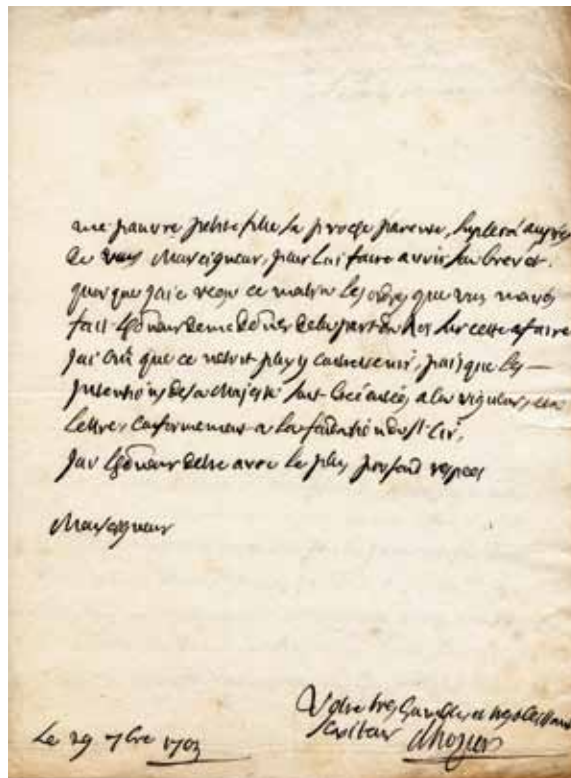 une pauvre petite fille, sa proche parente, supliera auprès
de vous Monseigneur, pour lui faire avoir son brevet.
quoique j'aie reçu ce matin les ordres que vous m'avés
fait l'honneur de me doner de la part du Roi sur cette afaire
j'ai crû que ce n'etoit pas y contrevenir, puisque les
Intentions de sa Majesté sont exécutées a la rigueur,
lettre, conformement a la fondation de St Cir,
j'ai l'honneur d'estre avec le plus profond respect
Monseigneur
Votre tres humble et tres obeissant
serviteur dhozier
Le 29 7bre 1703